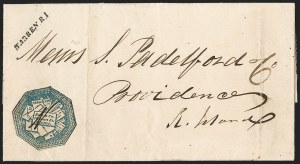 WARREN R I
Messrs S. Padelford & Co
Providence
R. Island